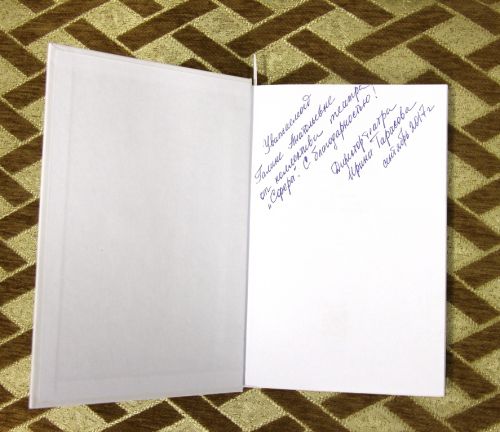 Уважаемой
Галине Анатольевне
от коллектива театра
„Сфера". С благодарностью!
Директор театра
Ирина Тарасова
сентябрь 2017 г